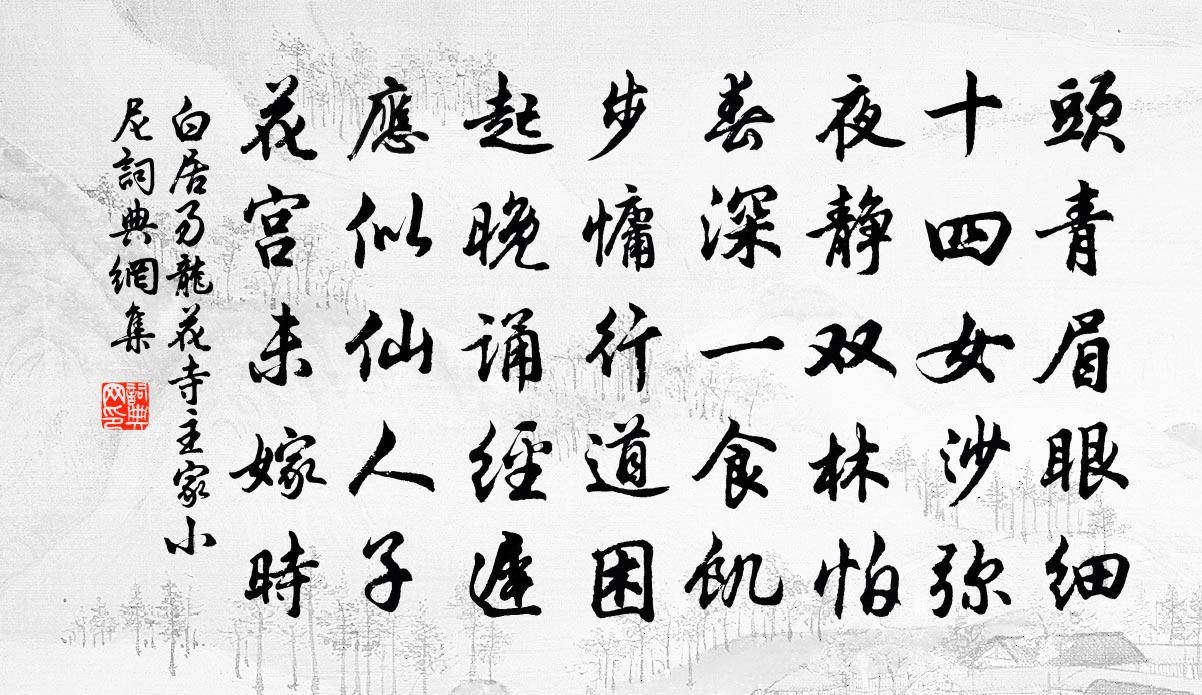 頭青眉眼细
十四女沙弥
夜静双林怕
春深一食飢
步慵行道困
起晚誦經遲
應似仙人子
花宫未嫁時
白居易龍花寺主家小
尼詞典網集
詞典
网印